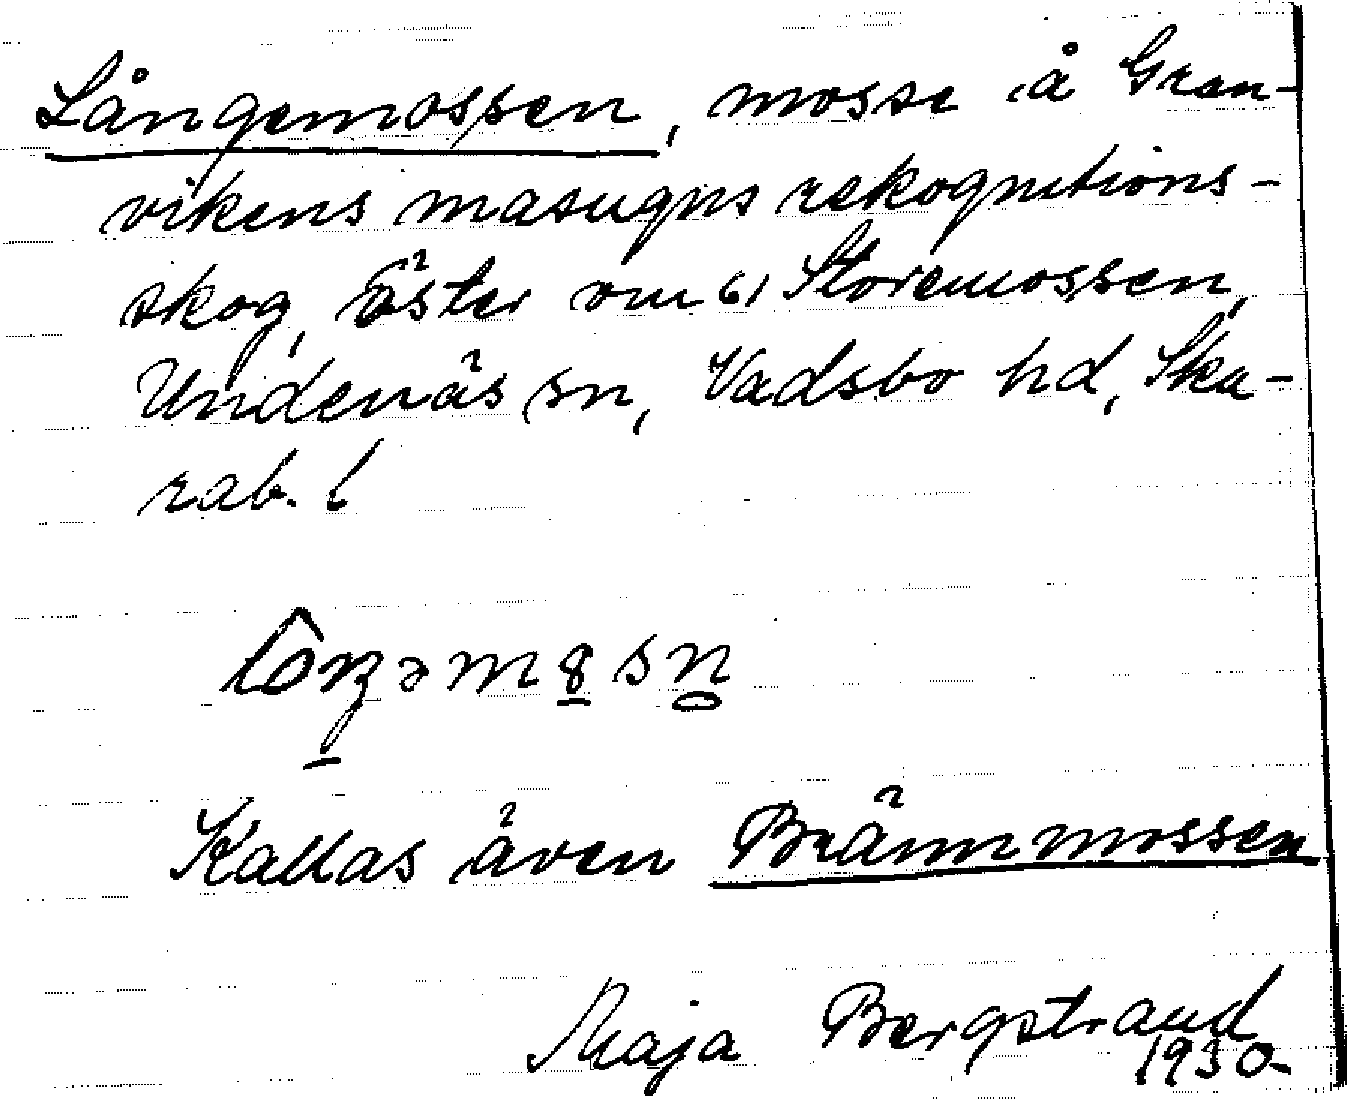 Långemossen, mosse å Gran-
vikens masugns rekognitions-
skog, öster om 61 Storemossen,
Undenäs sn, Vadsbo hd, Ska-
rab. l
Kallas även Brännmossen
Maja Bergstrand
1930-